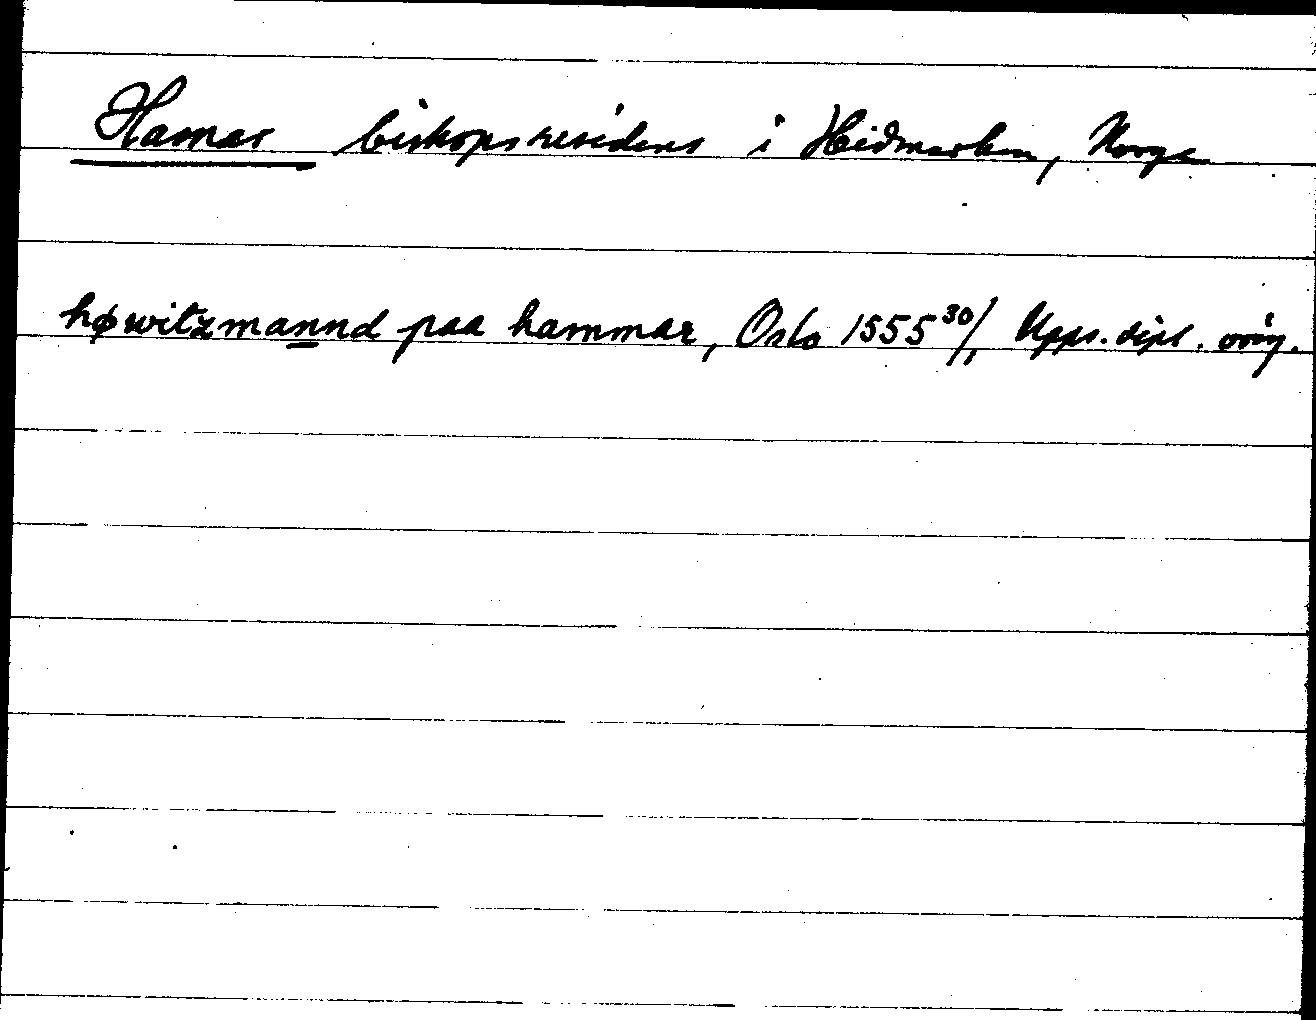 Hamar biskopsresidens i Heidmarken, Norge
høwitzmannd paa hammar, Oslo 1555 30/1 Upps. dipl. orig.